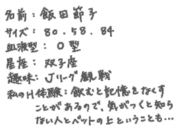 名前：飯田節子
サイズ：80.58.84
血液型：O型
星座：双子座
趣味：Jリーグ観戦
私のH体験：飲むと記憶をなくす
ことがあるので、気がつくと知ら
ない人とベットの上ということも…